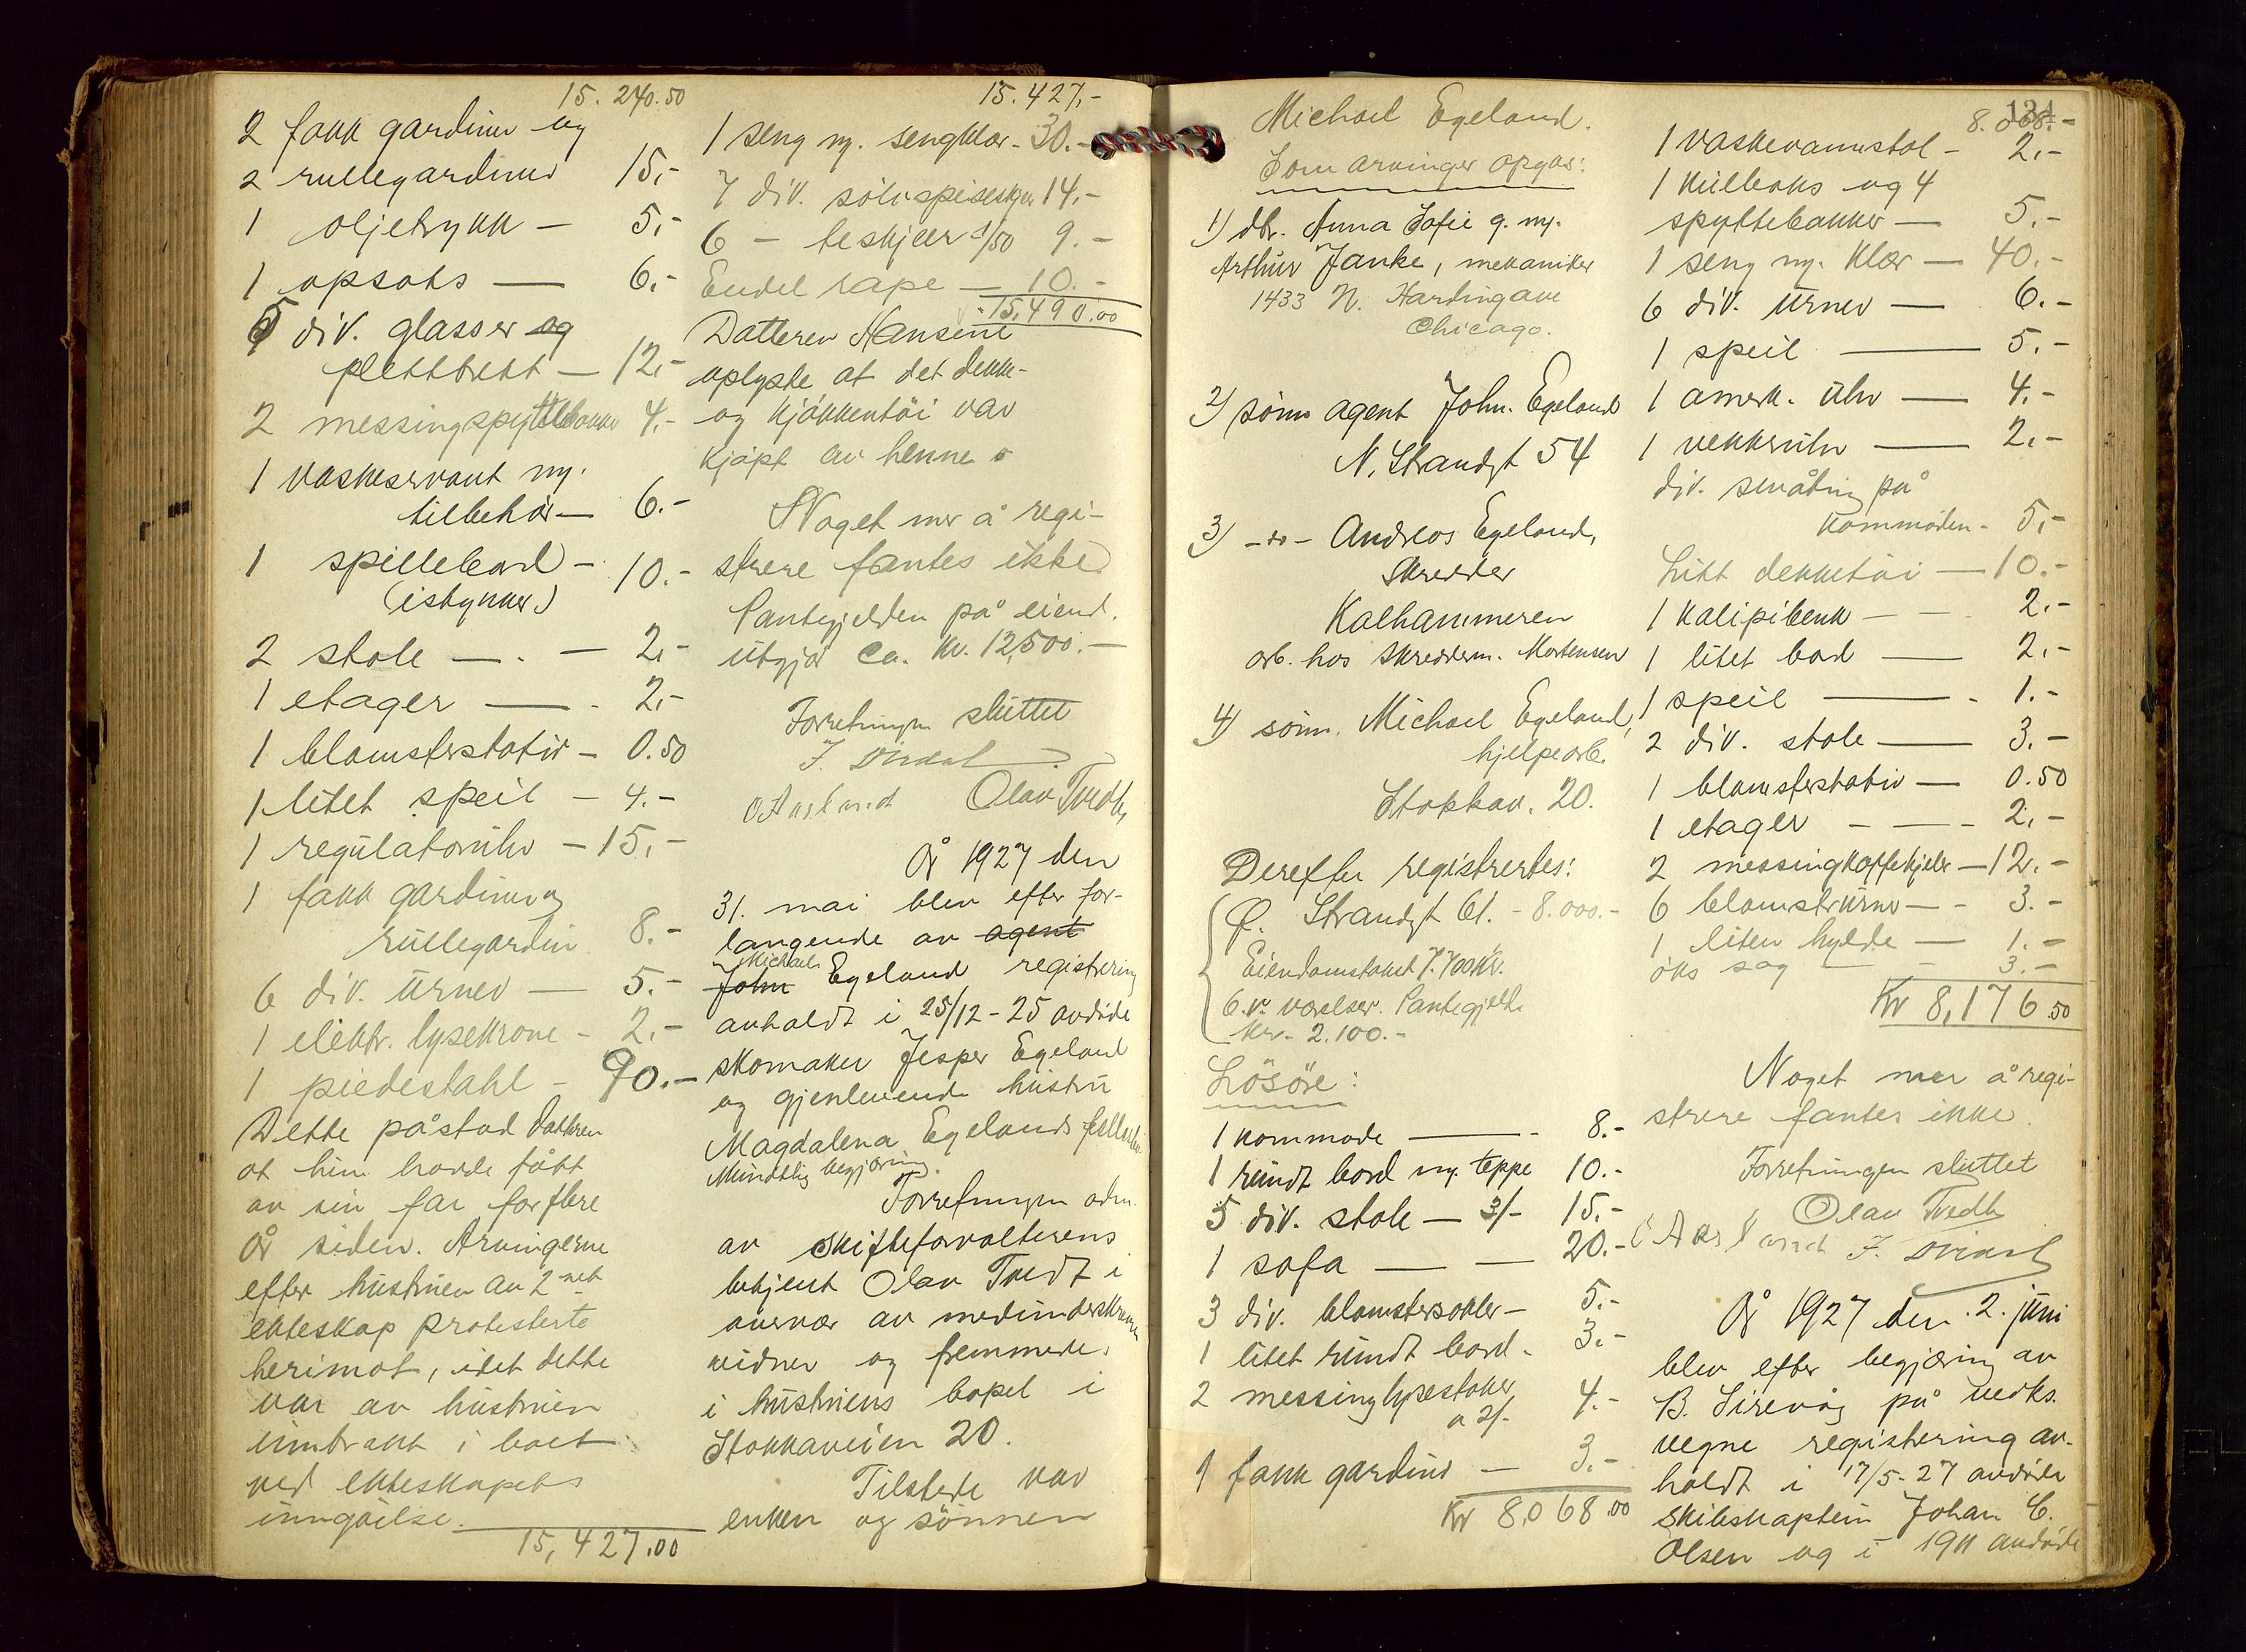 15.240.50
2 fakk gardiner og
2 rullegardiner 15,-
1 oljetrykk — 5,-
1 opsats — 6,-
5 div. glasser og
plettbrett — 12,-
2 messingspyttebakker 4.-
1 vaskeservant m/.
tilbehör — 6.-
1 spillebord — 10.-
(istykker)
2 stole — . — 2,-
1 etager — . 2,-
1 blomsterstativ — 0.50
1 litet speil — 4.-
1 regulatoruhr — 15,-
1 fakk gardiner og
rullegardin 8.-
6 div. urner — 5.-
1 elektr. lysekrone - 2.-
1 piedestahl - 90.-
Dette påstod datteren
at hun hadde fått
av sin far for flere
år siden. Arvingerne
efter hustruen av 2net
ekteskap protesterte
herimot, idet dette
var av hustruen
innbrakt i boet
ved ekteskapets
inngåelse.
15,427.00
15.427,-
1 seng m/. sengklær - 30.-
7 div. sölvspiseskjeer 14.-
6 - teskjeer 1/50 9.-
Endel rape — 10.-
15,490.00
Datteren Hansine
oplyste at det dekke-
og kjökkentöi var
kjöpt av henne
Noget mer å regi-
strere fantes ikke.
Pantegjelden på eiend.
utgjör ca. kr. 12,500.—
Forretningen sluttet
Olav Tvedt
År 1927 den
31. mai blev efter for-
langende av agent
Michael
John Egeland registrering
avholdt i 25/12-25 avdöde
skomaker Jesper Egeland
og gjenlevende hustru
Magdalena Egelands fellesbo
Mundtlig begjæring.
Forretningen adm.
av skifteforvalterens
betjent Olav Tvedt i
overvær av medunderskrevne
vidner og fremmede,
i hustruens bopel i
Stokkaveien 20.
Tilstede var
enken og sönnen
Michael Egeland.
Som arvinger opgas:
1) dtr. Anna Sofie g. m/.
Arthur Janke, mekaniker
1433 N. Harding ave
Chicago.
2) sönn agent John. Egeland
N. Strandgt 54
3) -do- Andreas Egeland,
Skredder
Kalhammeren
arb. hos skredderm. Mortensen
4) sönn. Michael Egeland,
hjelpearb.
Stokkav. 20.
Derefter registrertes:
Ö. Strandgt 61. - 8.000.-
Eiendomstakst 7.700 kr.
6 værelser. Pantegjeld
kr. 2.100.-
Lösöre:
1 kommode — 8.-
1 rundt bord m/. teppe 10.-
5 div. stole — 3/- 15.-
1 sofa — — 20.-
3 div. blomstersokler — 5.-
1 litet rundt bord - 3.-
2 messinglysestaker 4.-
a 2/-
1 fakk gardiner — 3.-
Kr 8,068.00
134
8.068.-
1 vaskevannstol - 2.-
1 kullboks og 4
spyttebakker — 5.-
1 seng m/. klær — 40.-
6 div. urner — 6.-
1 speil — 5.-
1 amerk. uhr — 4.-
1 vekkeruhr — 2.-
div. småting på
kommoden - 5,-
Litt dekketöi — 10.-
1 kalipibenk — 2.-
1 litet bord — 2.-
1 speil — 1.-
2 div. stole — 3.-
1 blomsterstativ — 0.50
1 etager — — 2.-
2 messingkaffekjeler — 12.-
6 blomsterurner — - 3.-
1 liten hylde — 1.-
öks sag — - 3.-
Kr 8,176.50
Noget mer å regi-
strere fantes ikke.
Forretningen sluttet
Olav Tvedt
År 1927 den 2. juni
blev efter begjæring av
B. Sirevåg på vedks.
vegne registrering av-
holdt i 17/5-27 avdöde
skibskaptein Johan C.
Olsen og i 1911 avdöde